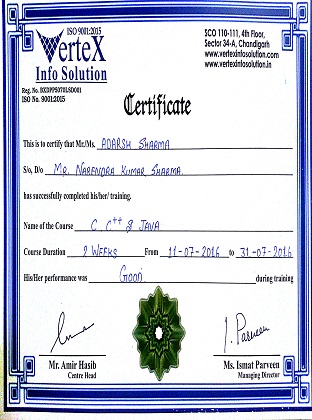 ISO 9001:2015
VerteX
Info Solution
SCO 110-111, 4th Floor,
Sector 34-A, Chandigarh
www.vertexinfosolution.com
www.vertexinfosolution.in
ISO No. 9001:2015
Certificate
This is to certify that Mr./Ms. ADARSH SHARMA
S/o, D/o MR. NARENDRA KUMAR SHARMA.
has successfully completed his/her/ training.
Name of the Course C C++ & JAVA
Course Duration WEEKS From 11-07-2016 to 31-07-2016
His/Her performance was GOOD during training
I. Parveen
Mr. Amir Hasib
Centre Head
Ms. Ismat Parveen
Managing Director